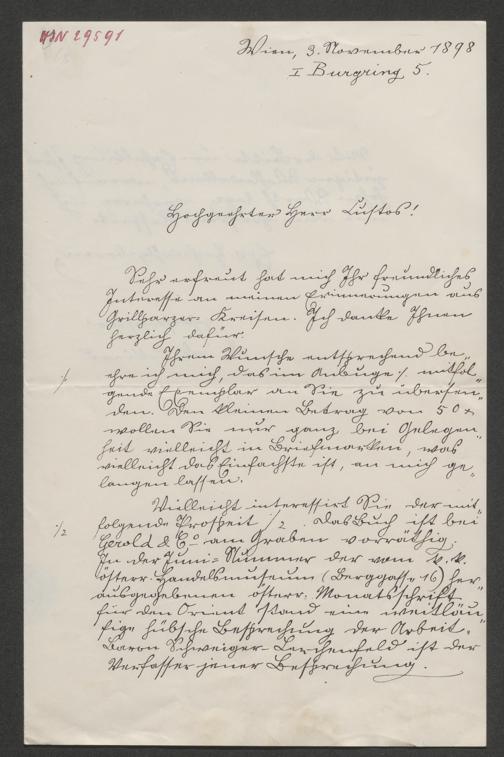 HIN 29591
Wien, 3. November 1898
I Burgring 5.
Hochgeehrter Herr Custos!
Sehr erfreut hat mich Ihr freundliches
Interesse an meinen Erinnerungen aus
Grillparzer-Kreisen. Ich danke Ihnen
herzlich dafür.
Ihrem Wunsche entsprechend be-
ehre ich mich, das im Anbuge ·/. mitfol-
gende Exemplar an Sie zu übersen-
den. Den kleinen Betrag von 50 x
wollen Sie nur ganz bei Gelegen-
heit vielleicht in Briefmarken, was
vielleicht das Einfachste ist, an mich ge-
langen lassen.
Vielleicht interessirt Sie der mit-
folgende ·/2. Das Buch ist bei
Gerold & Co am Graben vorräthig.
In der Juni-Nummer der vom k. k.
österr. Handelsmuseum (Berggasse 16) her-
ausgegebenen österr. Monatsschrift
für den Orient stand eine weitläu-
fige hübsche Besprechung der Arbeit.
Baron Schweiger-Lerchenfeld ist der
Verfasser jener Besprechung.
·/.
·/2